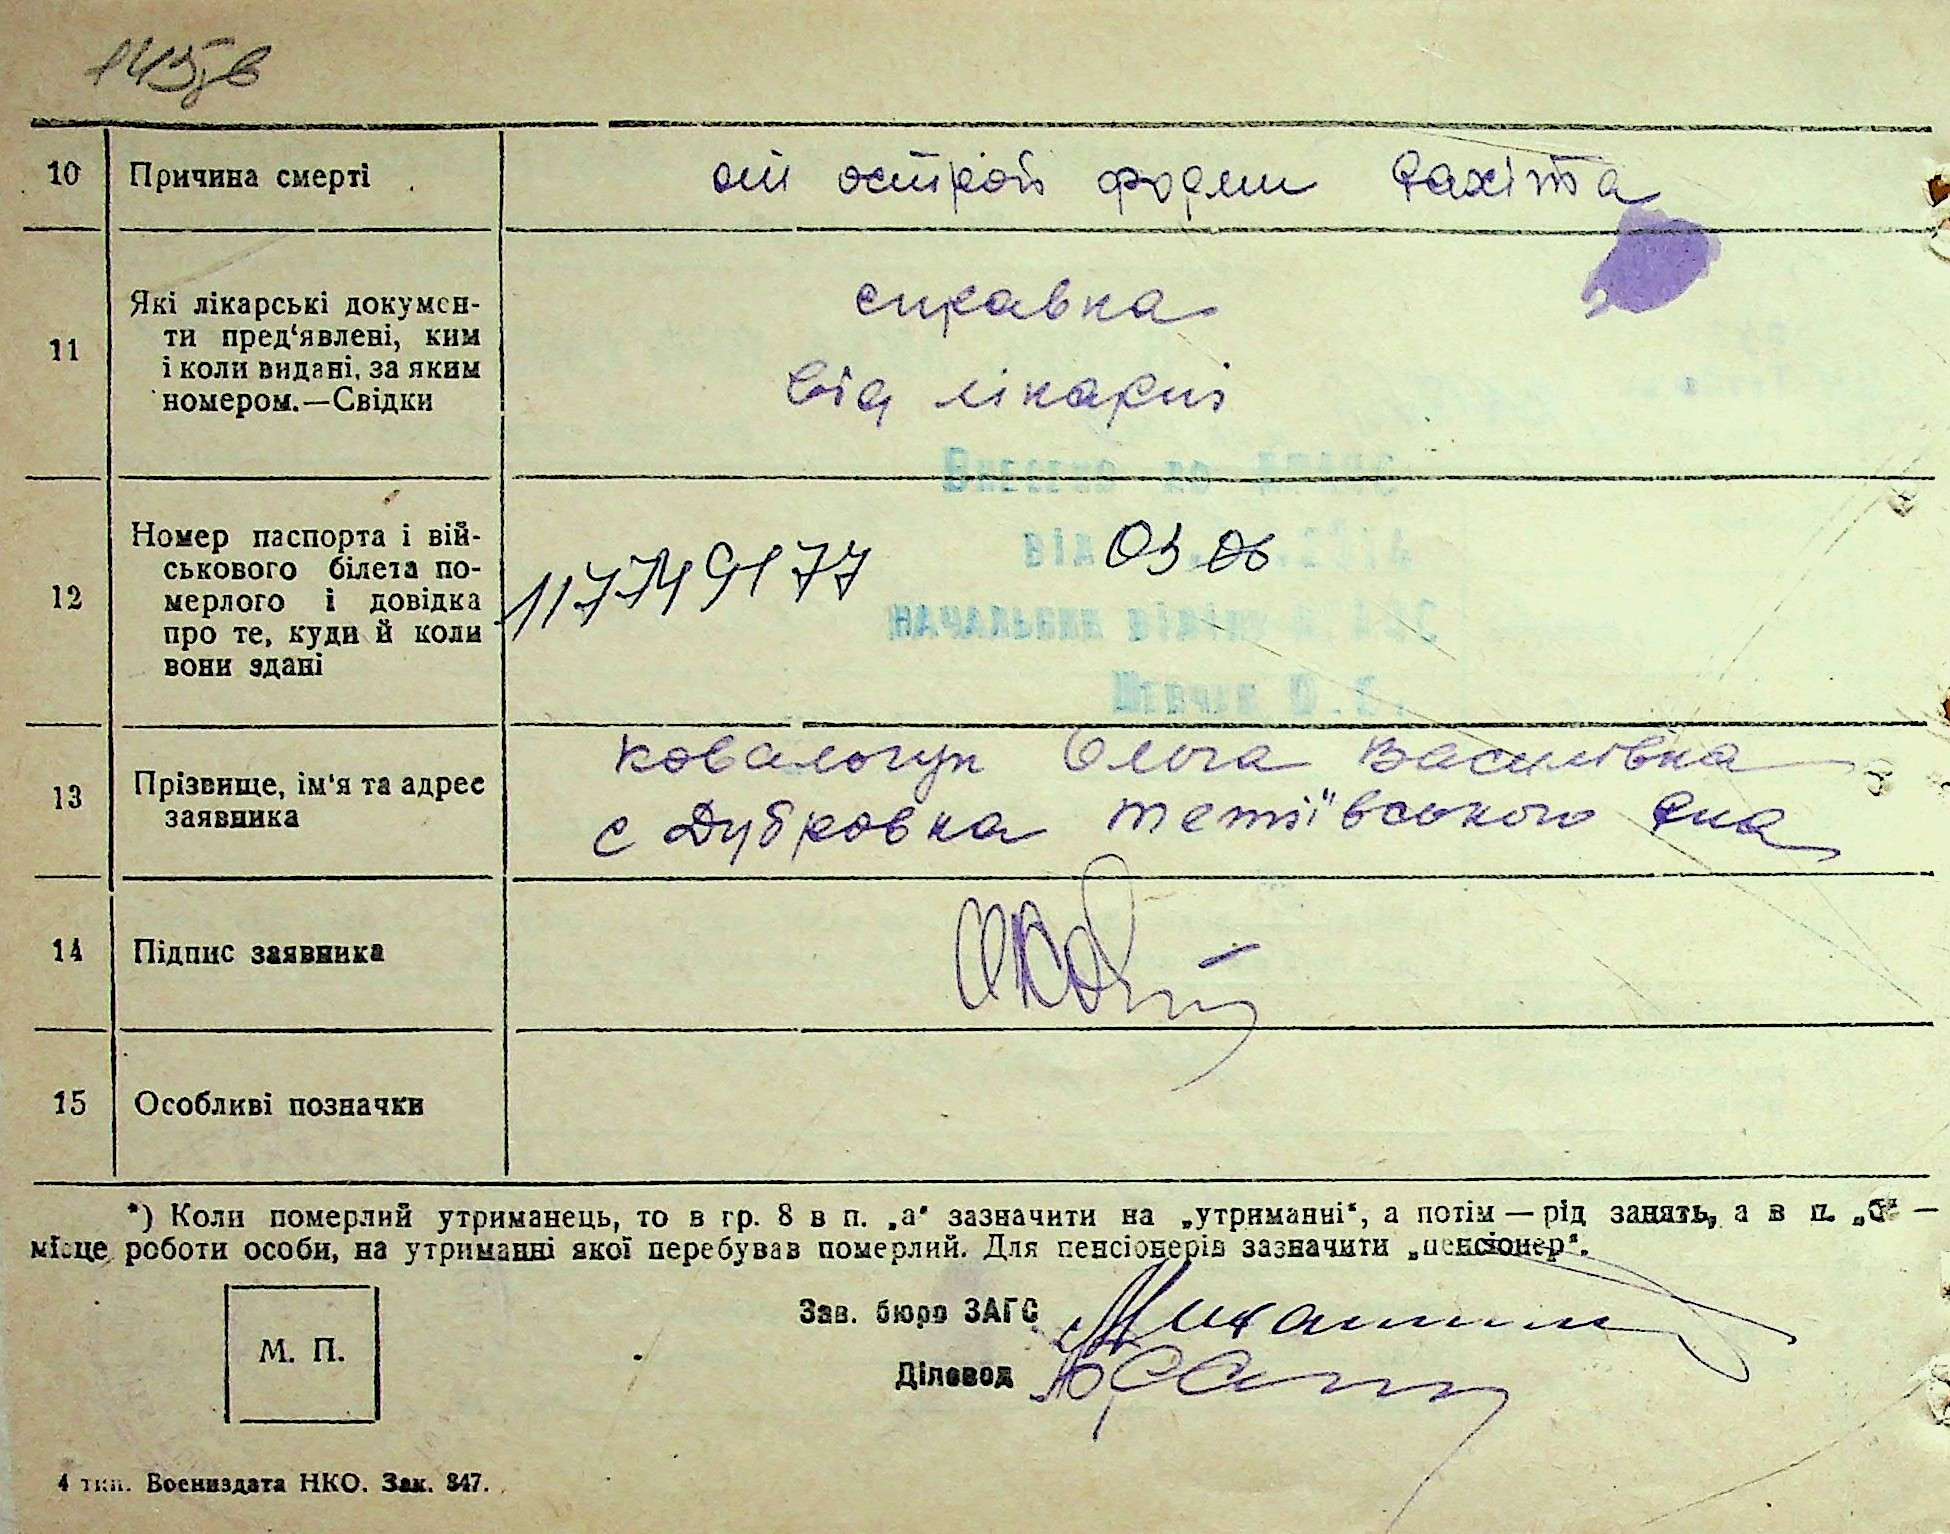 145зв
10 Причина смерті от острой форми рахіта
11 Які лікарські докумен-
ти пред‘явлені, ким
і коли видані, за яким
номером.—Свідки
справка
від лікарні
12 Номер паспорта і вій-
ськового білета по-
мерлого і довідка
про те, куди й коли
вони здані
Внесено до
від
начальник відділу
Шевчук О.
13 Прізвище, ім‘я та адрес
заявника
Ольга Василівна
с Дубровка Тетіївського р-на
14 Підпис заявника
15 Особливі позначки
*) Коли померлий утриманець, то в гр. 8 в п. „а“ зазначити на „утриманні“, а потім — рід занять, а в п. „б“ —
місце роботи особи, на утриманні якої перебував померлий. Для пенсіонерів зазначити „пенсіонер“.
М. П.
Зав. бюро ЗАГС
Діловод
4 тип. Воениздата НКО. Зак. 847.